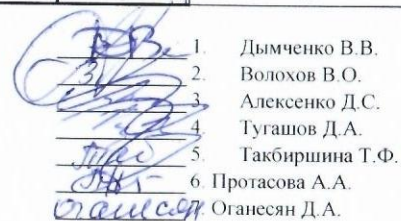 1. Дымченко В.В.
2. Волохов В.О.
3. Алексенко Д.С.
4. Тугашов Д.А.
5. Такбиршина Т.Ф.
6. Протасова А.А.
Оганесян 7. Оганесян Д.А.